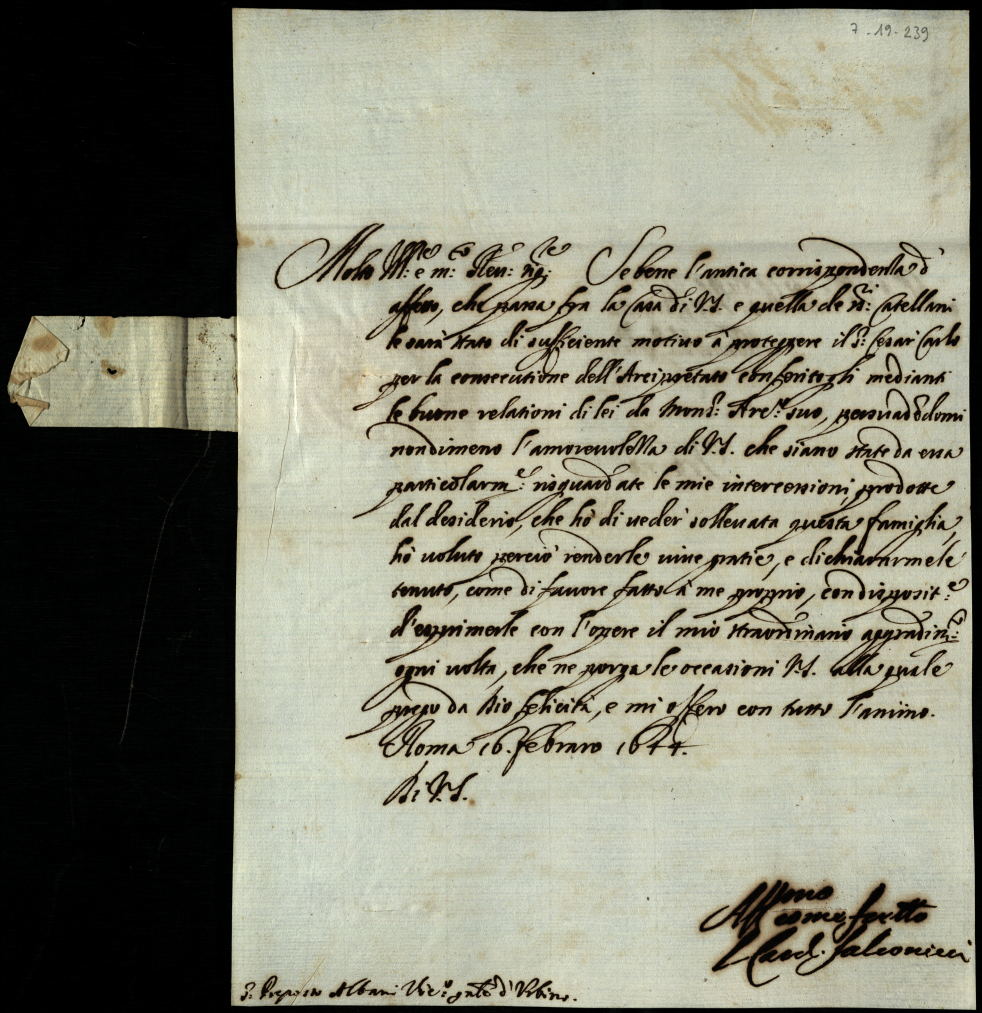 7-19-239
Molto Ill.re e m.to Rev.do Sig.re Se bene l'antica corrispondenza d'
affetto, che passa fra la Casa di V.S. e quella de ss.ri Catellani
le sarà stato di sufficiente motivo à proteggere il S.r Cesar Carlo
per la consecutione dell'Arcipretato conferitogli medianti
le buone relationi di lei da Mons.r Arc.o suo, persuadēdomi
nondimeno l'amorevolezza di V.S. che siano state da essa
particolarm.e risguardate le mie intercessioni, prodotte
dal desiderio, che hò di veder' sollevata questa famiglia,
hò voluto perciò renderle vive gratie, e dichiararmele
tenuto, come di favore fatto à me proprio, con disposit.e
d'esprimerle con l'opere il mio straordinario aggradim.to
ogni volta, che ne porga le occasioni V.S. alla quale
prego da Dio felicità, e mi offero con tutto l'animo.
Roma 16. febraro 1644.
Di V.S.
Aff.mo
come fratello
Il Card. Falconieri
S.r Preposto Albani Vic.o gnāle d'Urbino.